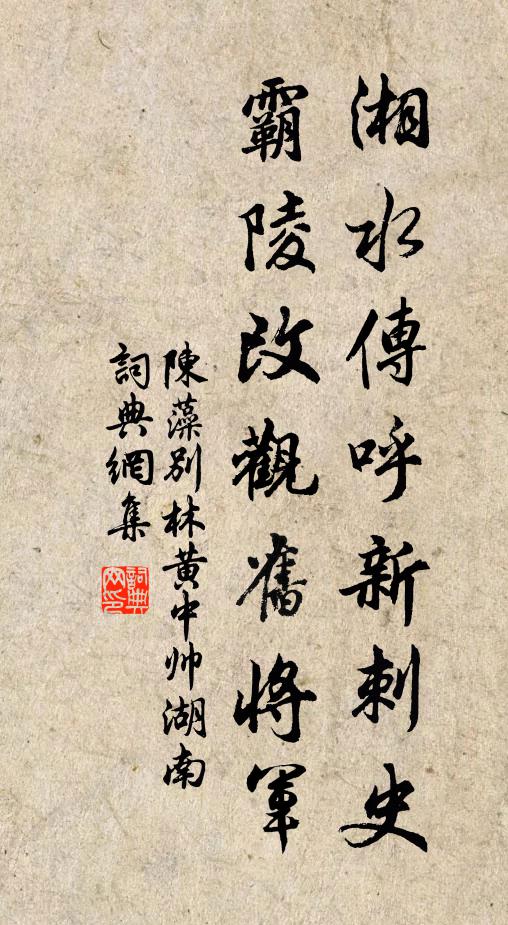 湘水傳呼新刺史
霸陵改觀舊將軍
陳藻別林黃中帅湖南
詞典網集
詞典網印